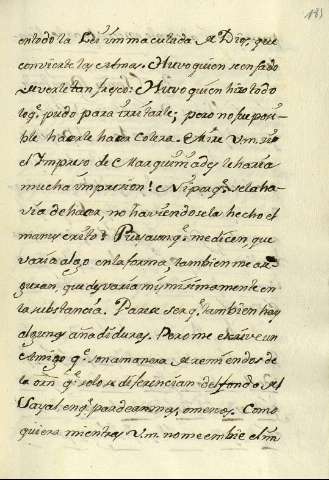 181
en todo la Ley immaculada de Dios, que
convierte las Almas. Huvo quien se enfado
de verle tan fresco: Huvo quien hizo todo
lo q.e pudo para irritarle; pero no fue posi-
ble hacerle hacer colera. Mire Vm. si
el Impreso de Marquina le haria
mucha impresion! Ni para q.e se la ha-
via de hacer, no haviendosela hecho el
manuscrito? Pues aunq.e me dicen, que
varia algo en la forma, tambien me ase-
guran, que dista mui minimamente en
la substancia. Parece ser q.e tambien hay
algunas añadiduras. Pero me escrive un
Amigo q.e son a manera de remiendos de
la orn q.e solo se diferencian del fondo del
Sayal, en q.e pardean mas, o menos. Como
quiera mientras Vm. no me embie el Im